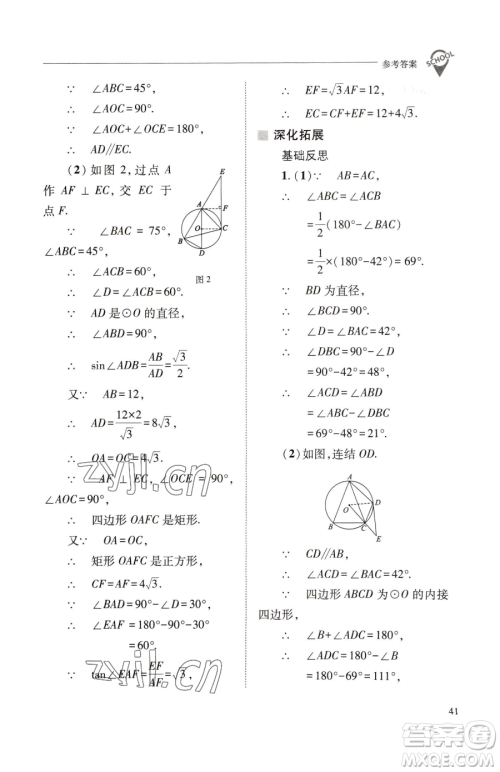 参考答案
SCHOOL
∵ ∠ABC=45°,
∴ ∠AOC=90°.
∵ ∠AOC+∠OCE=180°,
∴ AD//EC.
(2) 如图 2, 过点 A
作 AF ⊥ EC, 交 EC 于
点 F.
∵ ∠BAC = 75°,
∠ABC=45°,
∴ ∠ACB=60°.
∴ ∠D=∠ACB=60°.
∵ AD 是⊙O 的直径,
∴ ∠ABD=90°.
∴ sin∠ADB=AB/AD=√3/2.
又∵ AB=12,
∴ AD=12×2/√3=8√3,
∴ OA=OC=4√3.
∵ AF ⊥ EC, ∠OCE = 90°,
∠AOC=90°,
∴ 四边形 OAFC 是矩形.
又∵ OA=OC,
∴ 矩形 OAFC 是正方形,
∴ CF=AF=4√3.
∵ ∠BAD=90°-∠D=30°,
∴ ∠EAF=180°-90°-30°
=60°.
∵ tan∠EAF=EF/AF=√3,
E
A
F
O
C
B
D
图 2
∴ EF=√3AF=12,
∴ EC=CF+EF=12+4√3.
深化拓展
基础反思
1. (1)∵ AB=AC,
∴ ∠ABC=∠ACB
=1/2(180°-∠BAC)
=1/2×(180°-42°)=69°.
∵ BD 为直径,
∴ ∠BCD=90°.
∴ ∠D=∠BAC=42°,
∴ ∠DBC=90°-∠D
=90°-42°=48°,
∴ ∠ACD=∠ABD
=∠ABC-∠DBC
=69°-48°=21°.
(2) 如图, 连结 OD.
A
D
O
B
C
E
∵ CD//AB,
∴ ∠ACD=∠BAC=42°.
∵ 四边形 ABCD 为⊙O 的内接
四边形,
∴ ∠B+∠ADC=180°,
∴ ∠ADC=180°-∠B
=180°-69°=111°,
zyjl.cn
zyjl.cn
41
答案圈
MXQE.COM